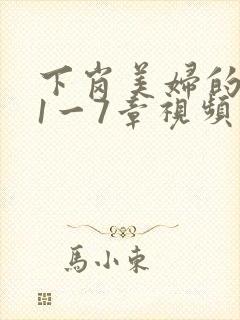 下岗美婦的
1一7章視頻
馬小東